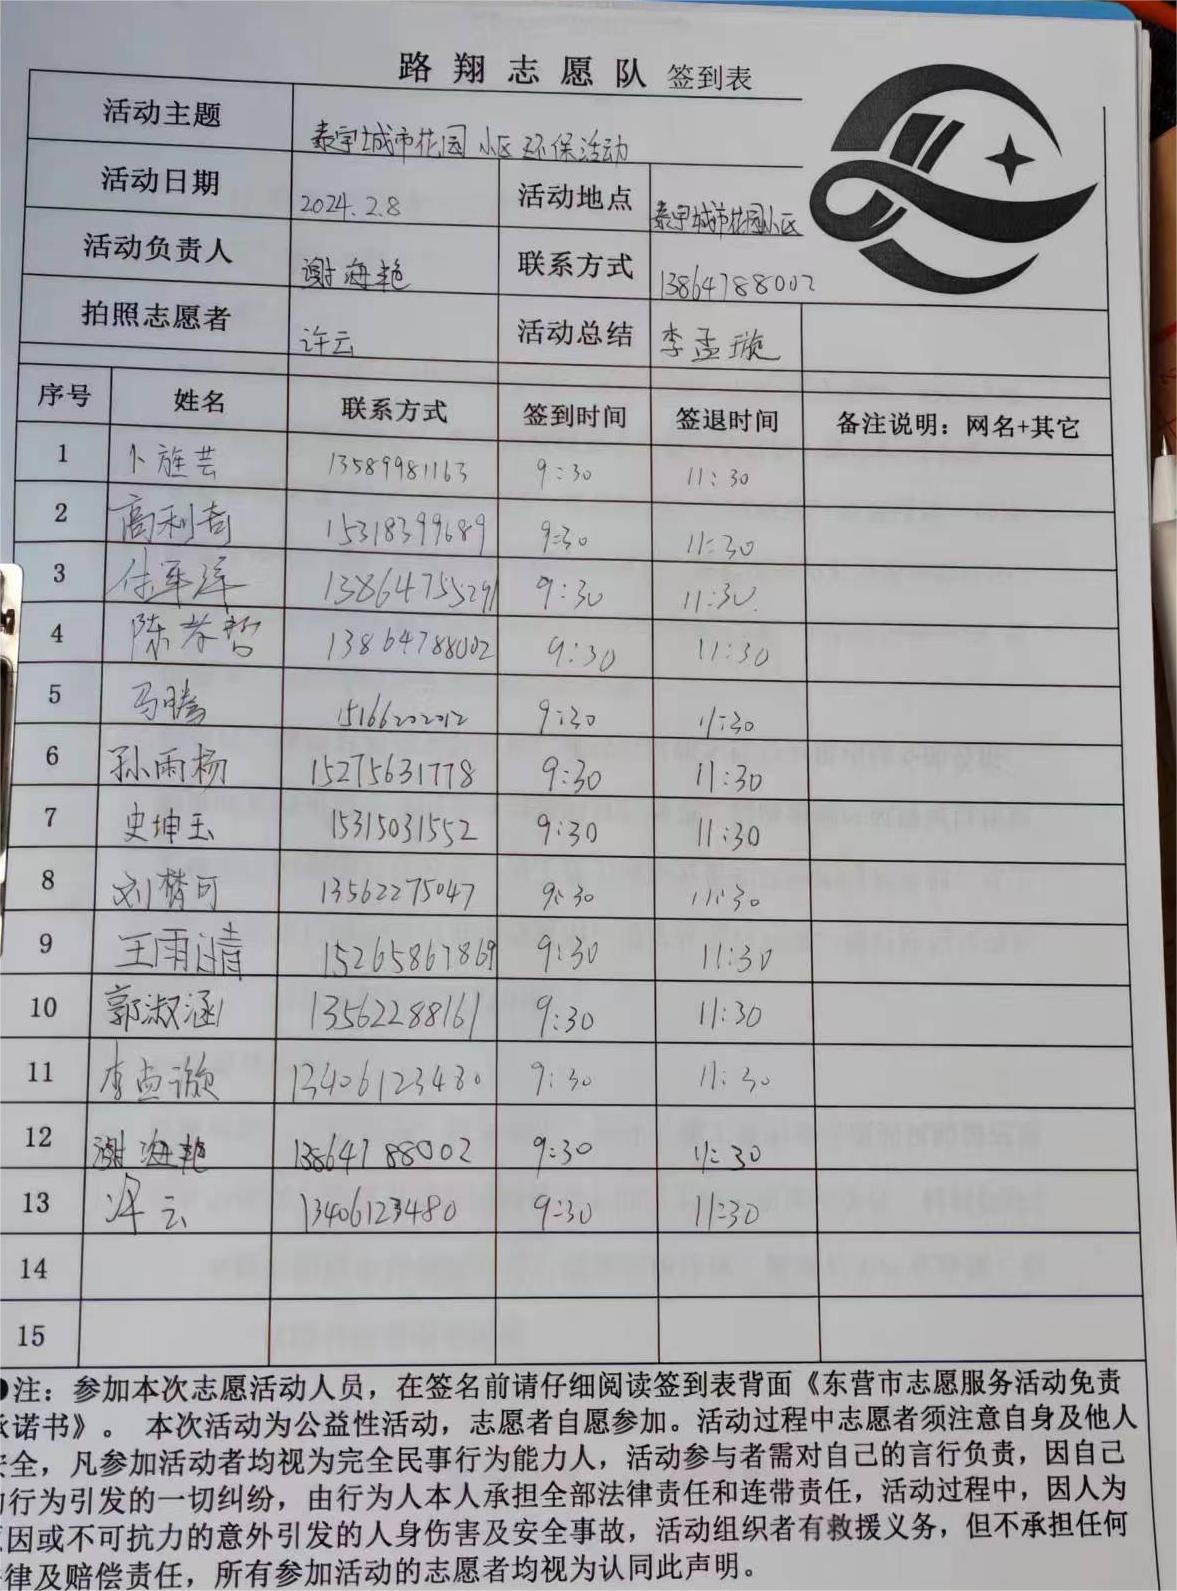 路翔志愿队 签到表
活动主题 泰宇城市花园小区环保活动
活动日期 2024.2.8 活动地点 泰宇城市花园小区
活动负责人 谢海艳 联系方式 13864788002
拍照志愿者 许云 活动总结 李孟璇
序号 姓名 联系方式 签到时间 签退时间 备注说明：网名+其它
1 卜旌芸 13589981163 9:30 11:30
2 高利奇 15318399689 9:30 11:30
3 13864755291 9:30 11:30
4 陈孝哲 13864788002 9:30 11:30
5 马腾 15166202012 9:30 11:30
6 孙雨杨 15275631778 9:30 11:30
7 史坤玉 15315031552 9:30 11:30
8 刘梦可 13562275047 9:30 11:30
9 王雨清 15265867869 9:30 11:30
10 郭淑涵 13562288161 9:30 11:30
11 李孟璇 13406123480 9:30 11:30
12 谢海艳 13864788002 9:30 11:30
13 许云 13406123480 9:30 11:30
14
15
●注：参加本次志愿活动人员，在签名前请仔细阅读签到表背面《东营市志愿服务活动免责
承诺书》。 本次活动为公益性活动，志愿者自愿参加。活动过程中志愿者须注意自身及他人
安全，凡参加活动者均视为完全民事行为能力人，活动参与者需对自己的言行负责，因自己
的行为引发的一切纠纷，由行为人本人承担全部法律责任和连带责任，活动过程中，因人为
原因或不可抗力的意外引发的人身伤害及安全事故，活动组织者有救援义务，但不承担任何
法律及赔偿责任，所有参加活动的志愿者均视为认同此声明。